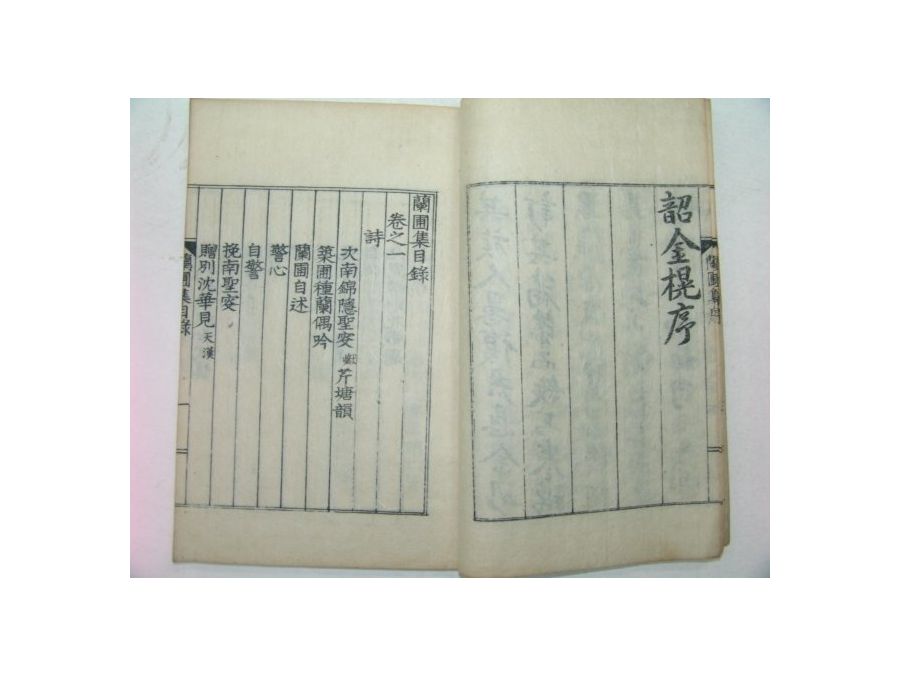 韶金榥序
蘭圃集目錄
卷之一
詩
次南錦隱聖安芹塘韻
築圃種蘭偶吟
蘭圃自述
警心
自警
挽南聖安
贈別沈華見天漢
蘭圃集目錄